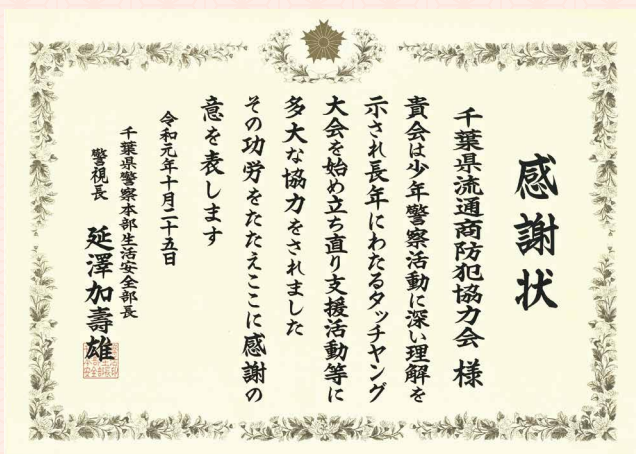 感謝状
千葉県流通商防犯協力会 様
貴会は少年警察活動に深い理解を
示され長年にわたるタッチヤング
大会を始め立ち直り支援活動等に
多大な協力をされました
その功労をたたえここに感謝の
意を表します
令和元年十月二十五日
千葉県警察本部生活安全部長
警視長 延澤加壽雄